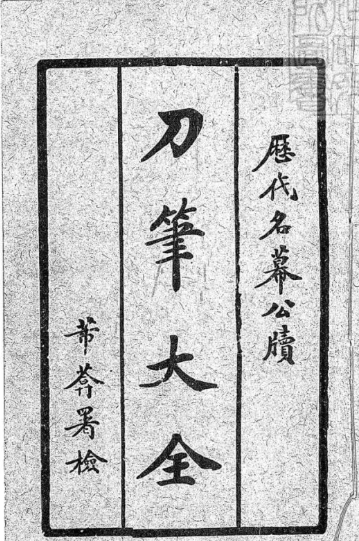 歷代名幕公牘
刀筆大全
芾荅署檢